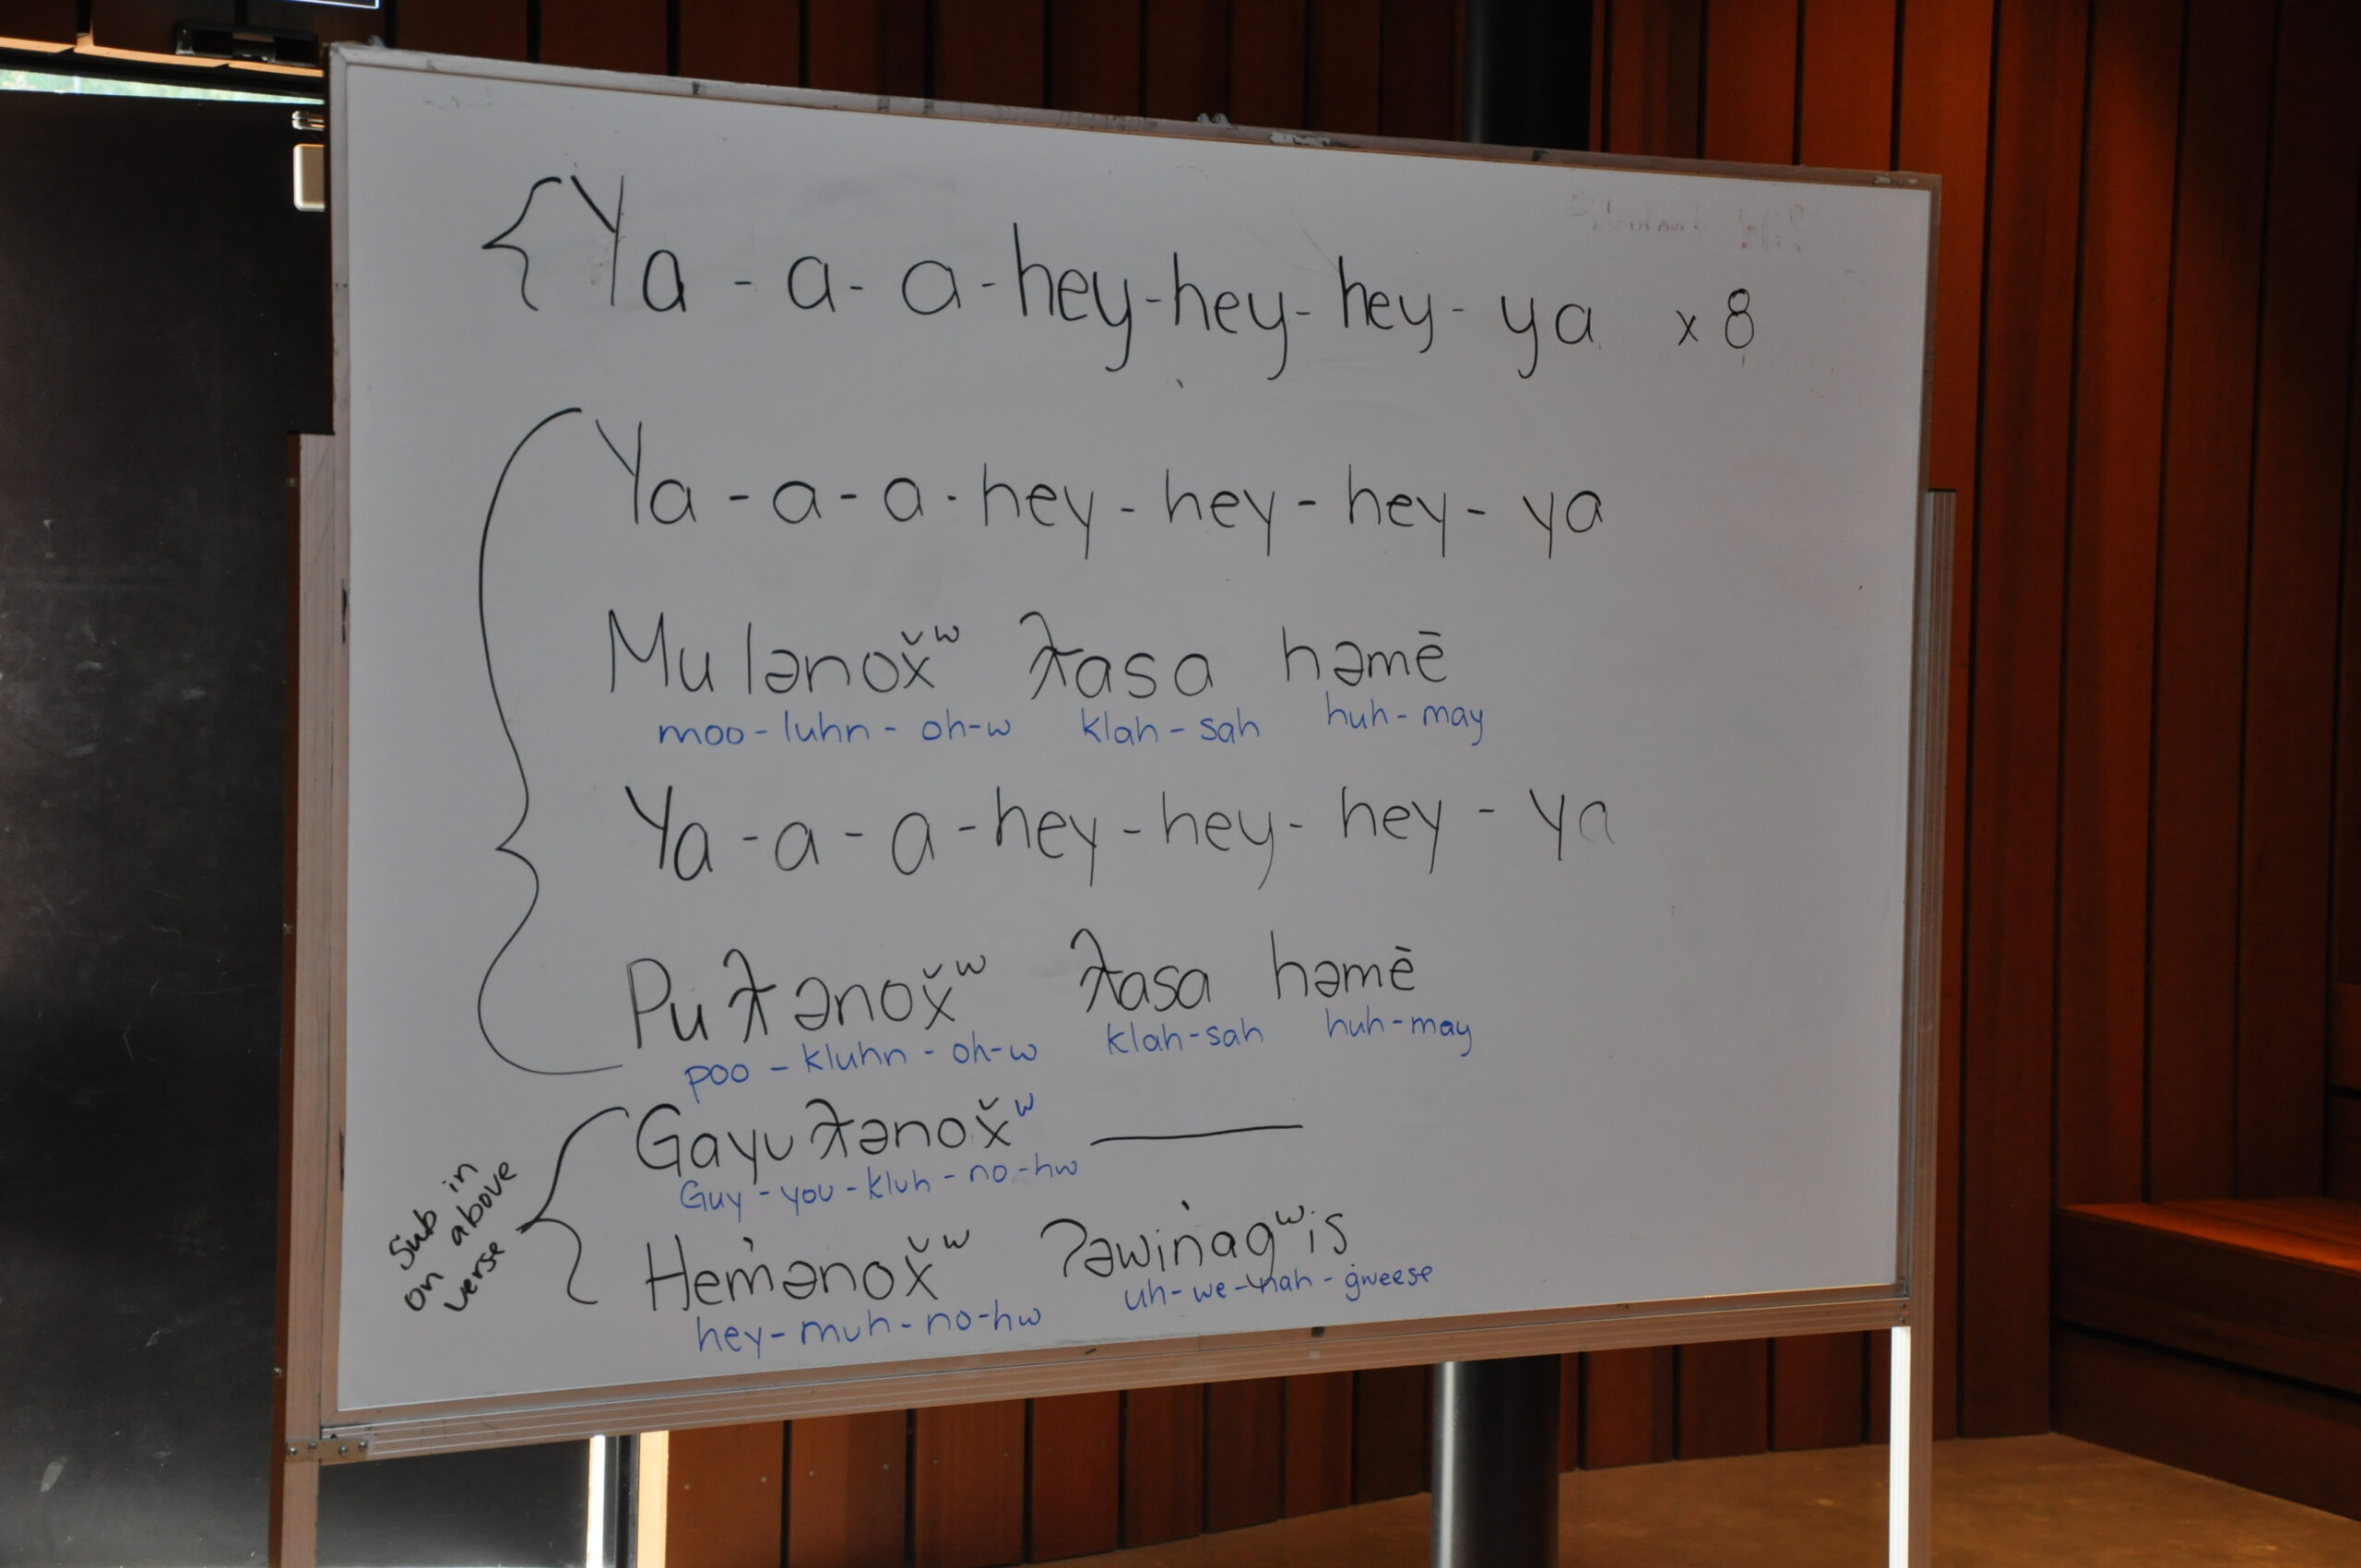 Ya - a - a - hey - hey - hey - ya x 8
Ya - a - a - hey - hey - hey - ya
Mulənox̌ʷ ƛasa həmē
moo - luhn - oh-w klah - sah huh - may
Ya - a - a - hey - hey - hey - ya
Puƛənox̌ʷ ƛasa həmē
poo - kluhn - oh-w klah-sah huh-may
Gayuƛənox̌ʷ ______
Guy - you - kluh - no - hw
Sub in
on above
verse
Hem̓ənox̌ʷ ʔəwin̓agʷis
hey - muh - no - hw uh - we - nah - ġweese